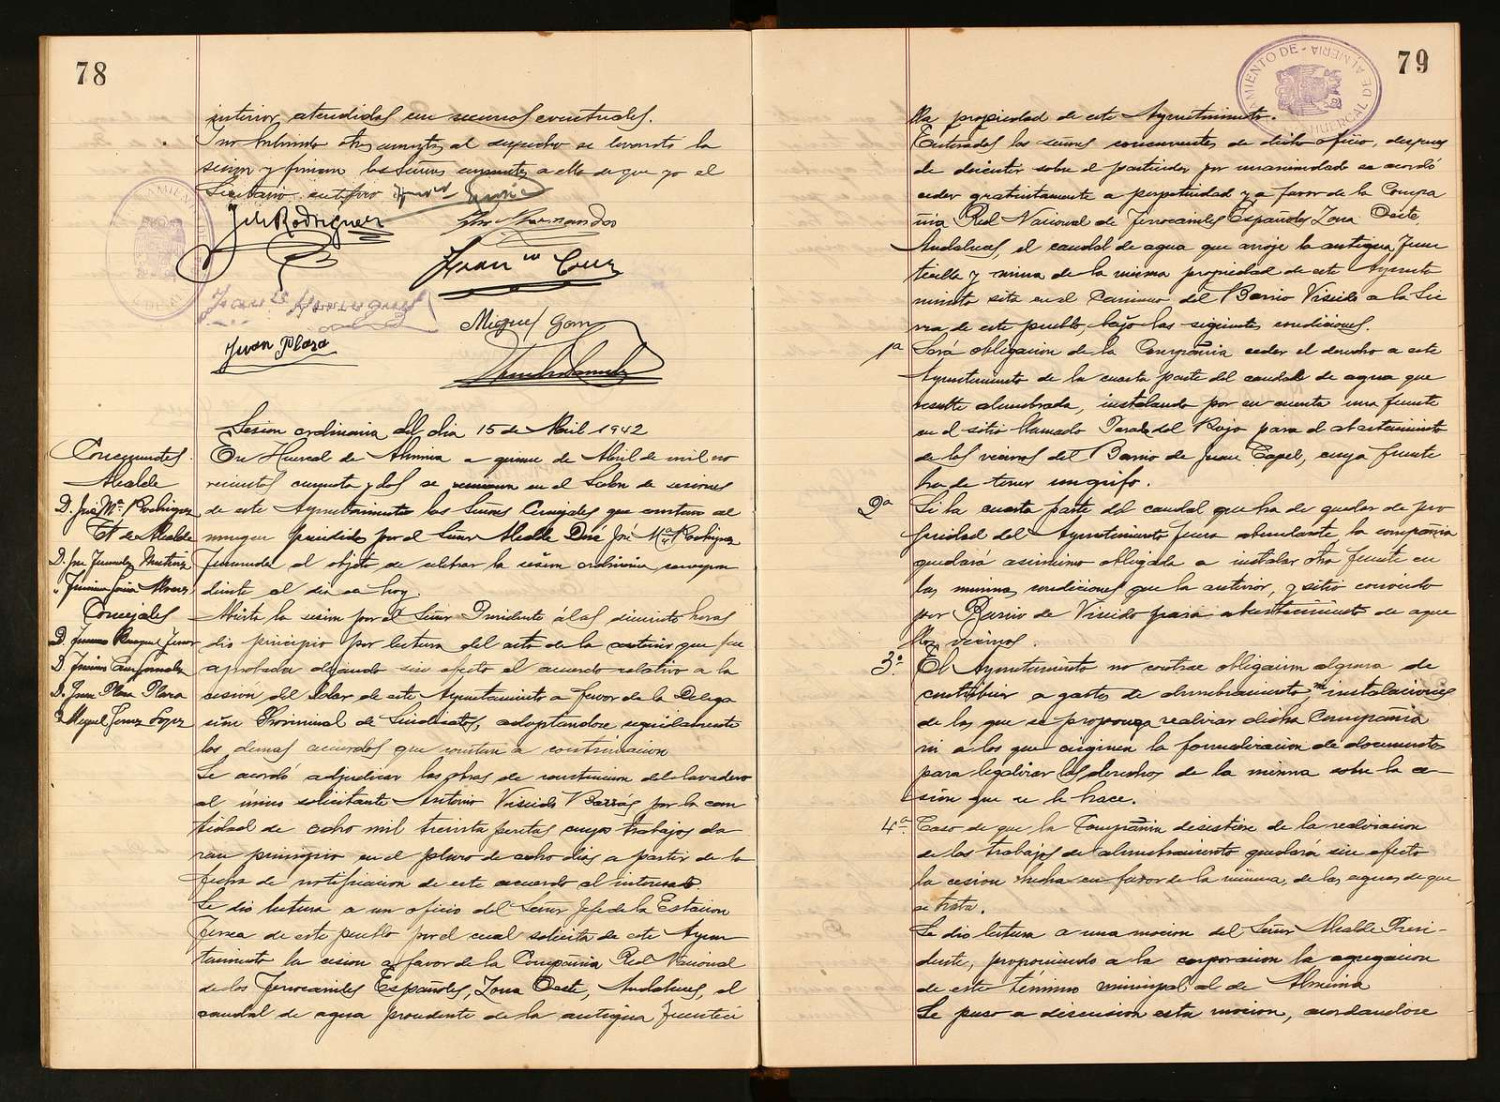 78
interior, atendidos con recursos eventuales.
Y no habiendo otros asuntos al despacho se levantó la
sesion y firman los Señores concurrentes a ella de que yo el
Secretario certifico
J. M. Rodriguez
Juan Cruz
Juan Plaza
Miguel Gom
Sesion ordinaria del dia 15 de Abril 1942
Concurrentes
Alcalde
D. José Mª Rodriguez
Tt de Alcalde
Concejales
D. Juan Plaza Plaza
D. Miguel Gomez Lopez
En Huercal de Almeria a quince de Abril de mil no
vecientos cuarenta y dos se reunieron en el Salon de sesiones
de este Ayuntamiento los Señores Concejales que anotan al
margen presididos por el Señor Alcalde Don José Mª Rodriguez
Fernandez al objeto de celebrar la sesion ordinaria correspon
diente al dia de hoy.
Abierta la sesion por el Señor Presidente á las diecisiete horas
dio principio por lectura del acta de la anterior que fue
aprobada dejando sin efecto el acuerdo relativo a la
cesión del solar de este Ayuntamiento a favor de la Delega
ción Provincial de Sindicatos, adoptandose seguidamente
los demas acuerdos que constan a continuacion
Se acordó adjudicar las obras de construccion del lavadero
al único solicitante Antonio Visiedo Barrás, por la can
tidad de ocho mil treinta pesetas cuyos trabajos da
ran principio en el plazo de ocho dias a partir de la
fecha de notificacion de este acuerdo al interesado.
Se dio lectura a un oficio del Señor Jefe de la Estacion
Ferrea de este pueblo por el cual solicita de este Ayun
tamiento la cesion a favor de la Compañia Red Nacional
de los Ferrocarriles Españoles, Zona Oeste, Andaluces, el
caudal de agua procedente de la antigua Fuenteci
79
AYUNTAMIENTO DE HUERCAL DE ALMERIA
lla propiedad de este Ayuntamiento.
Enterados los señores concurrentes de dicho oficio, despues
de discutir sobre el particular por unanimidad se acordó
ceder gratuitamente a perpetuidad y a favor de la Compa
ñia Red Nacional de Ferrocarriles Españoles Zona Oeste,
Andaluces, el caudal de agua que arroje la antigua Fuen
tecilla y mina de la misma propiedad de este Ayunta
miento sita en el Camino del Barrio Visiedo a la Sie
rra de este pueblo, bajo las siguientes condiciones.
1ª Será obligacion de la Compañia ceder el derecho a este
Ayuntamiento de la cuarta parte del caudal de agua que
resulte alumbrada, instalando por su cuenta una fuente
en el sitio llamado Parada del Rojo para el abastecimiento
de los vecinos del Barrio de Juan Capel, cuya fuente
ha de tener un grifo.
2ª Si la cuarta parte del caudal que ha de quedar de pro
piedad del Ayuntamiento fuera abundante, la compañia
quedará asimismo obligada a instalar otra fuente en
las mismas condiciones que la anterior, y sitio conocido
por Barrio de Visiedo para abastecimiento de aque
llos vecinos.
3ª El Ayuntamiento no contrae obligacion alguna de
contribuir a gastos de alumbramiento, ni instalaciones
de las que se proponga realizar dicha Compañia
ni a los que originen la formalizacion de documentos
para legalizar los derechos de la misma sobre la ce-
sion que se le hace.
4ª Caso de que la Compañia desistiere de la realizacion
de los trabajos de alumbramiento quedará sin efecto
la cesion hecha en favor de la misma, de las aguas de que
se trata.
Se dio lectura a una mocion del Señor Alcalde Presi-
dente, proponiendo a la corporacion la agregacion
de este término municipal al de Almeria
Se puso a discusion esta mocion, acordandose